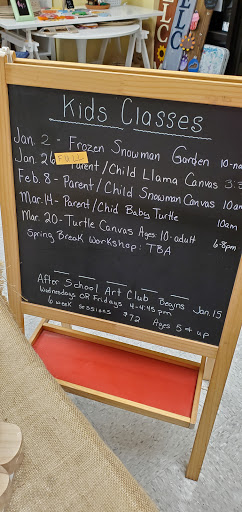 Kids Classes
Jan. 2 - Frozen Snowman Garden 10-no
Jan. 26 FULL Parent/Child Llama Canvas 3:
Feb. 8 - Parent/Child Snowman Canvas 10am
Mar. 14 - Parent/Chid Baby Turtle 10am
Mar. 20 - Turtle Canvas Ages: 10-adult 6-8pm
Spring Break Workshop: TBA
After School Art Club Begins Jan. 15
Wednesdays OR Fridays 4-4:45 pm
6 week sessions $72 Ages 5 + up